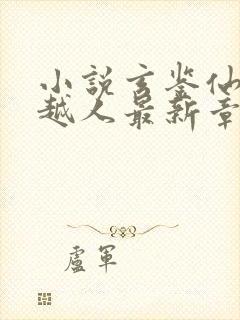 小說玄鉴仙
越人最新章
盧軍